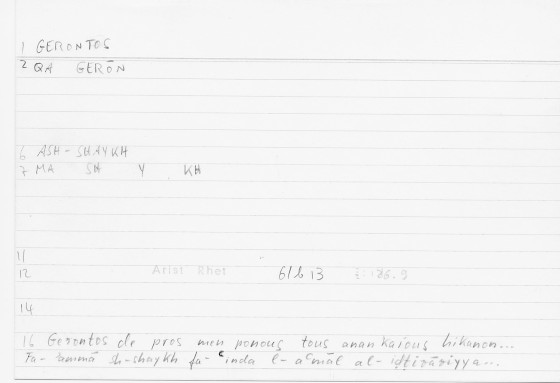 1 GERONTOS
2 QA GERŌN
6 ASH-SHAYKH
7 MA SH Y KH
11
12 Arist Rhet 61b13
14
16 Gerontos de pros men ponous tous anankaious hikanon...
Fa-'ammā sh-shaykh fa-ʿinda l-aʿmāl al-iḍṭirāriyya...